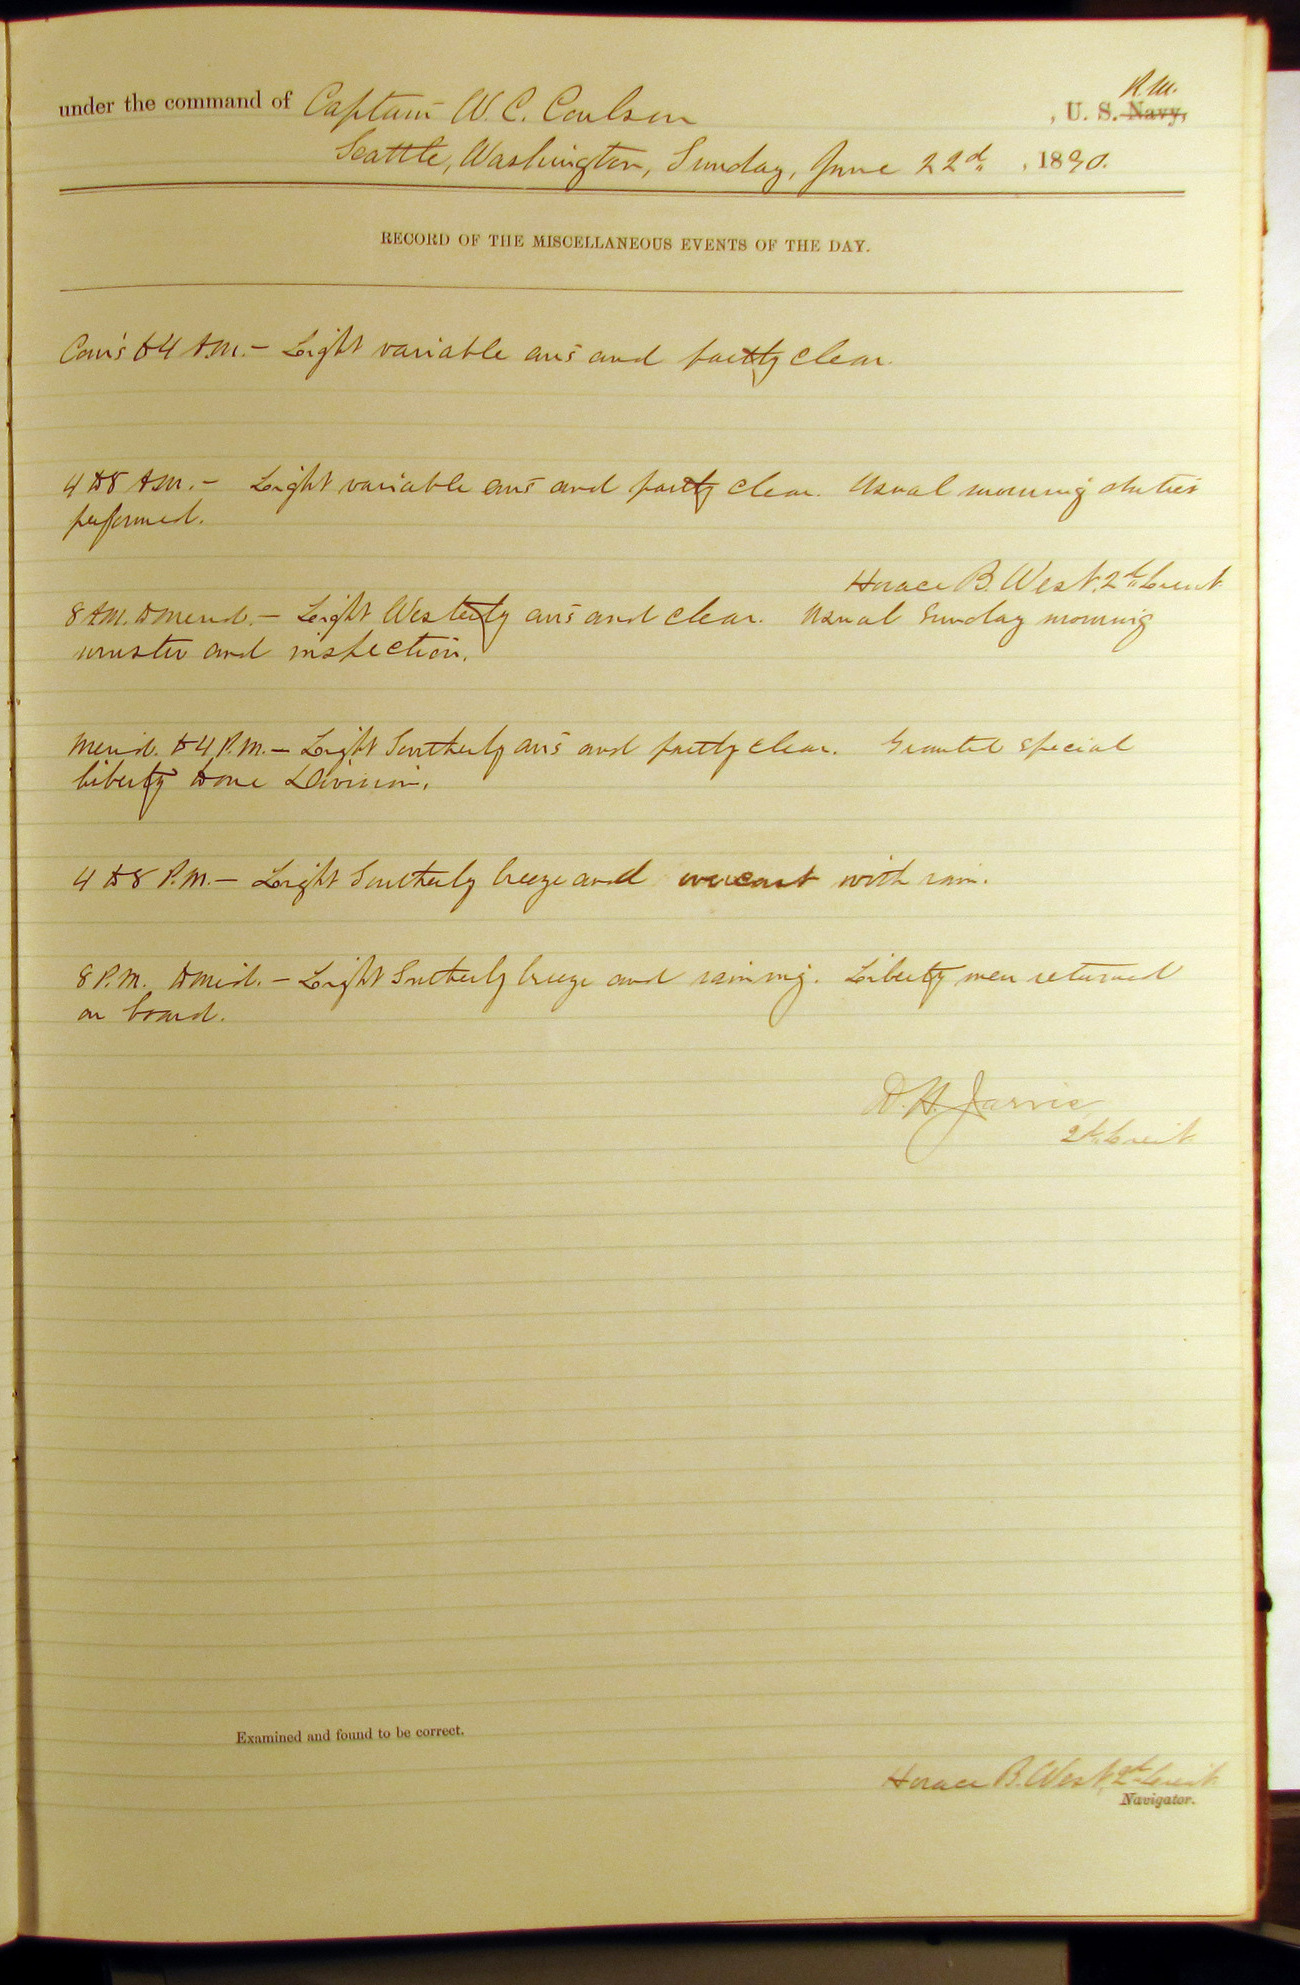 R.M.
under the command of Captain W. C. Coulson , U. S. Navy,
Seattle, Washington, Sunday, June 22d , 1890.
RECORD OF THE MISCELLANEOUS EVENTS OF THE DAY.
Com's to 4 A.M. – Light variable airs and partly clear.
4 to 8 A.M. – Light variable airs and partly clear. Usual morning duties
performed.
Horace B. West, 2d Lieut
8 A.M. to merid. – Light Westerly airs and clear. Usual Sunday morning
muster and inspection.
Merid. to 4 P.M. – Light Southerly airs and partly clear. Granted special
liberty to one Division.
4 to 8 P.M. – Light Southerly breeze and overcast with rain.
8 P.M. to mid. – Light Southerly breeze and raining. Liberty men returned
on board.
D. H. Jarvis
2d Lieut
Examined and found to be correct.
Horace B. West, 2d Lieut
Navigator.